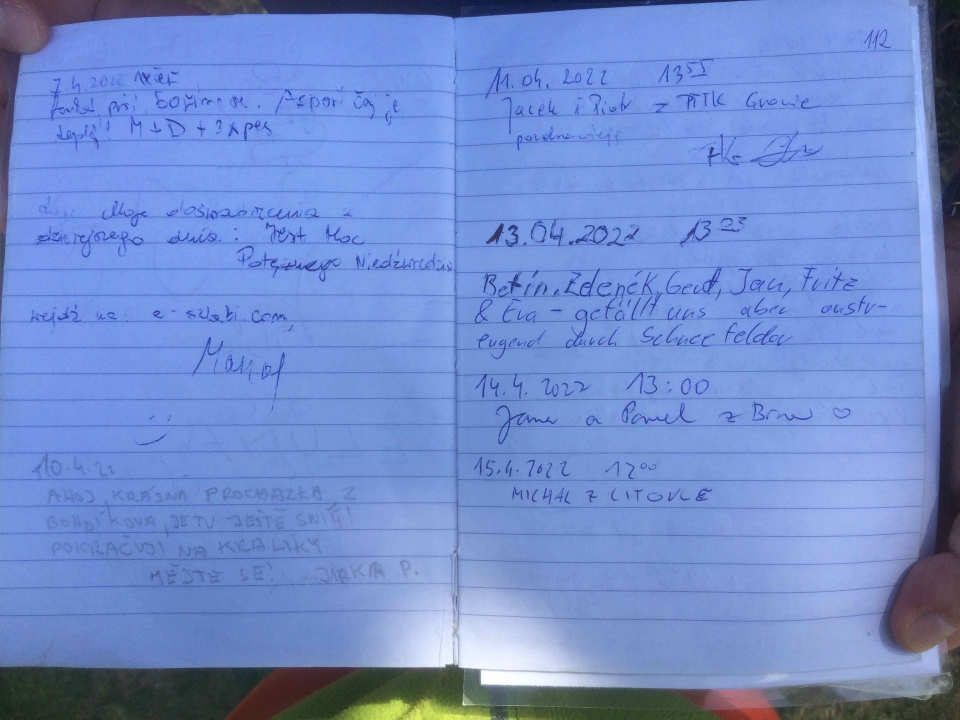 7.4.2022
prší. Bojíme se. Aspoň čaj je
teplý! M + D + 3x pes
Moje doświadczenia z
dzisiejszego dnia: Jest Moc
Potężnego Niedźwiedzia
wejdź na: e-szlabi.com,
10.4.22
AHOJ, KRÁSNÁ PROCHÁZKA Z
JE TU JEŠTĚ SNÍH!
POKRAČUJI NA KRALIKY
MĚJTE SE! JIRKA P.
112
11.04.2022 13 55
Jacek i Piotr z PTTK Gronie
pozdrawiają
13.04.2022 13 03
Betin, Zdeněk, Gerd, Jan, Fritz
& Eva – gefällt uns aber anstr-
engend durch Schneefelder
14.4.2022 13:00
Jana a Pavel z Brna ♡
15.4.2022 12 00
MICHAL Z LITOVLE